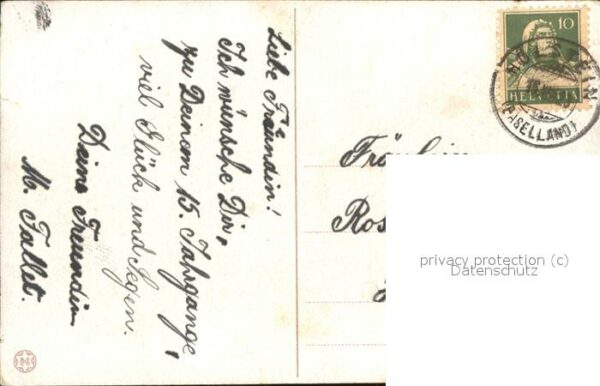 Liebe Freundin!
Ich wünsche Dir,
zu Deinem 15. Jahrgange,
viel Glück und Segen.
Deine Freundin
M. Fallet.
10
HELVETIA
HÖLSTEIN
(BASELLAND)
Fräulein
Ros
privacy protection (c)
Datenschutz